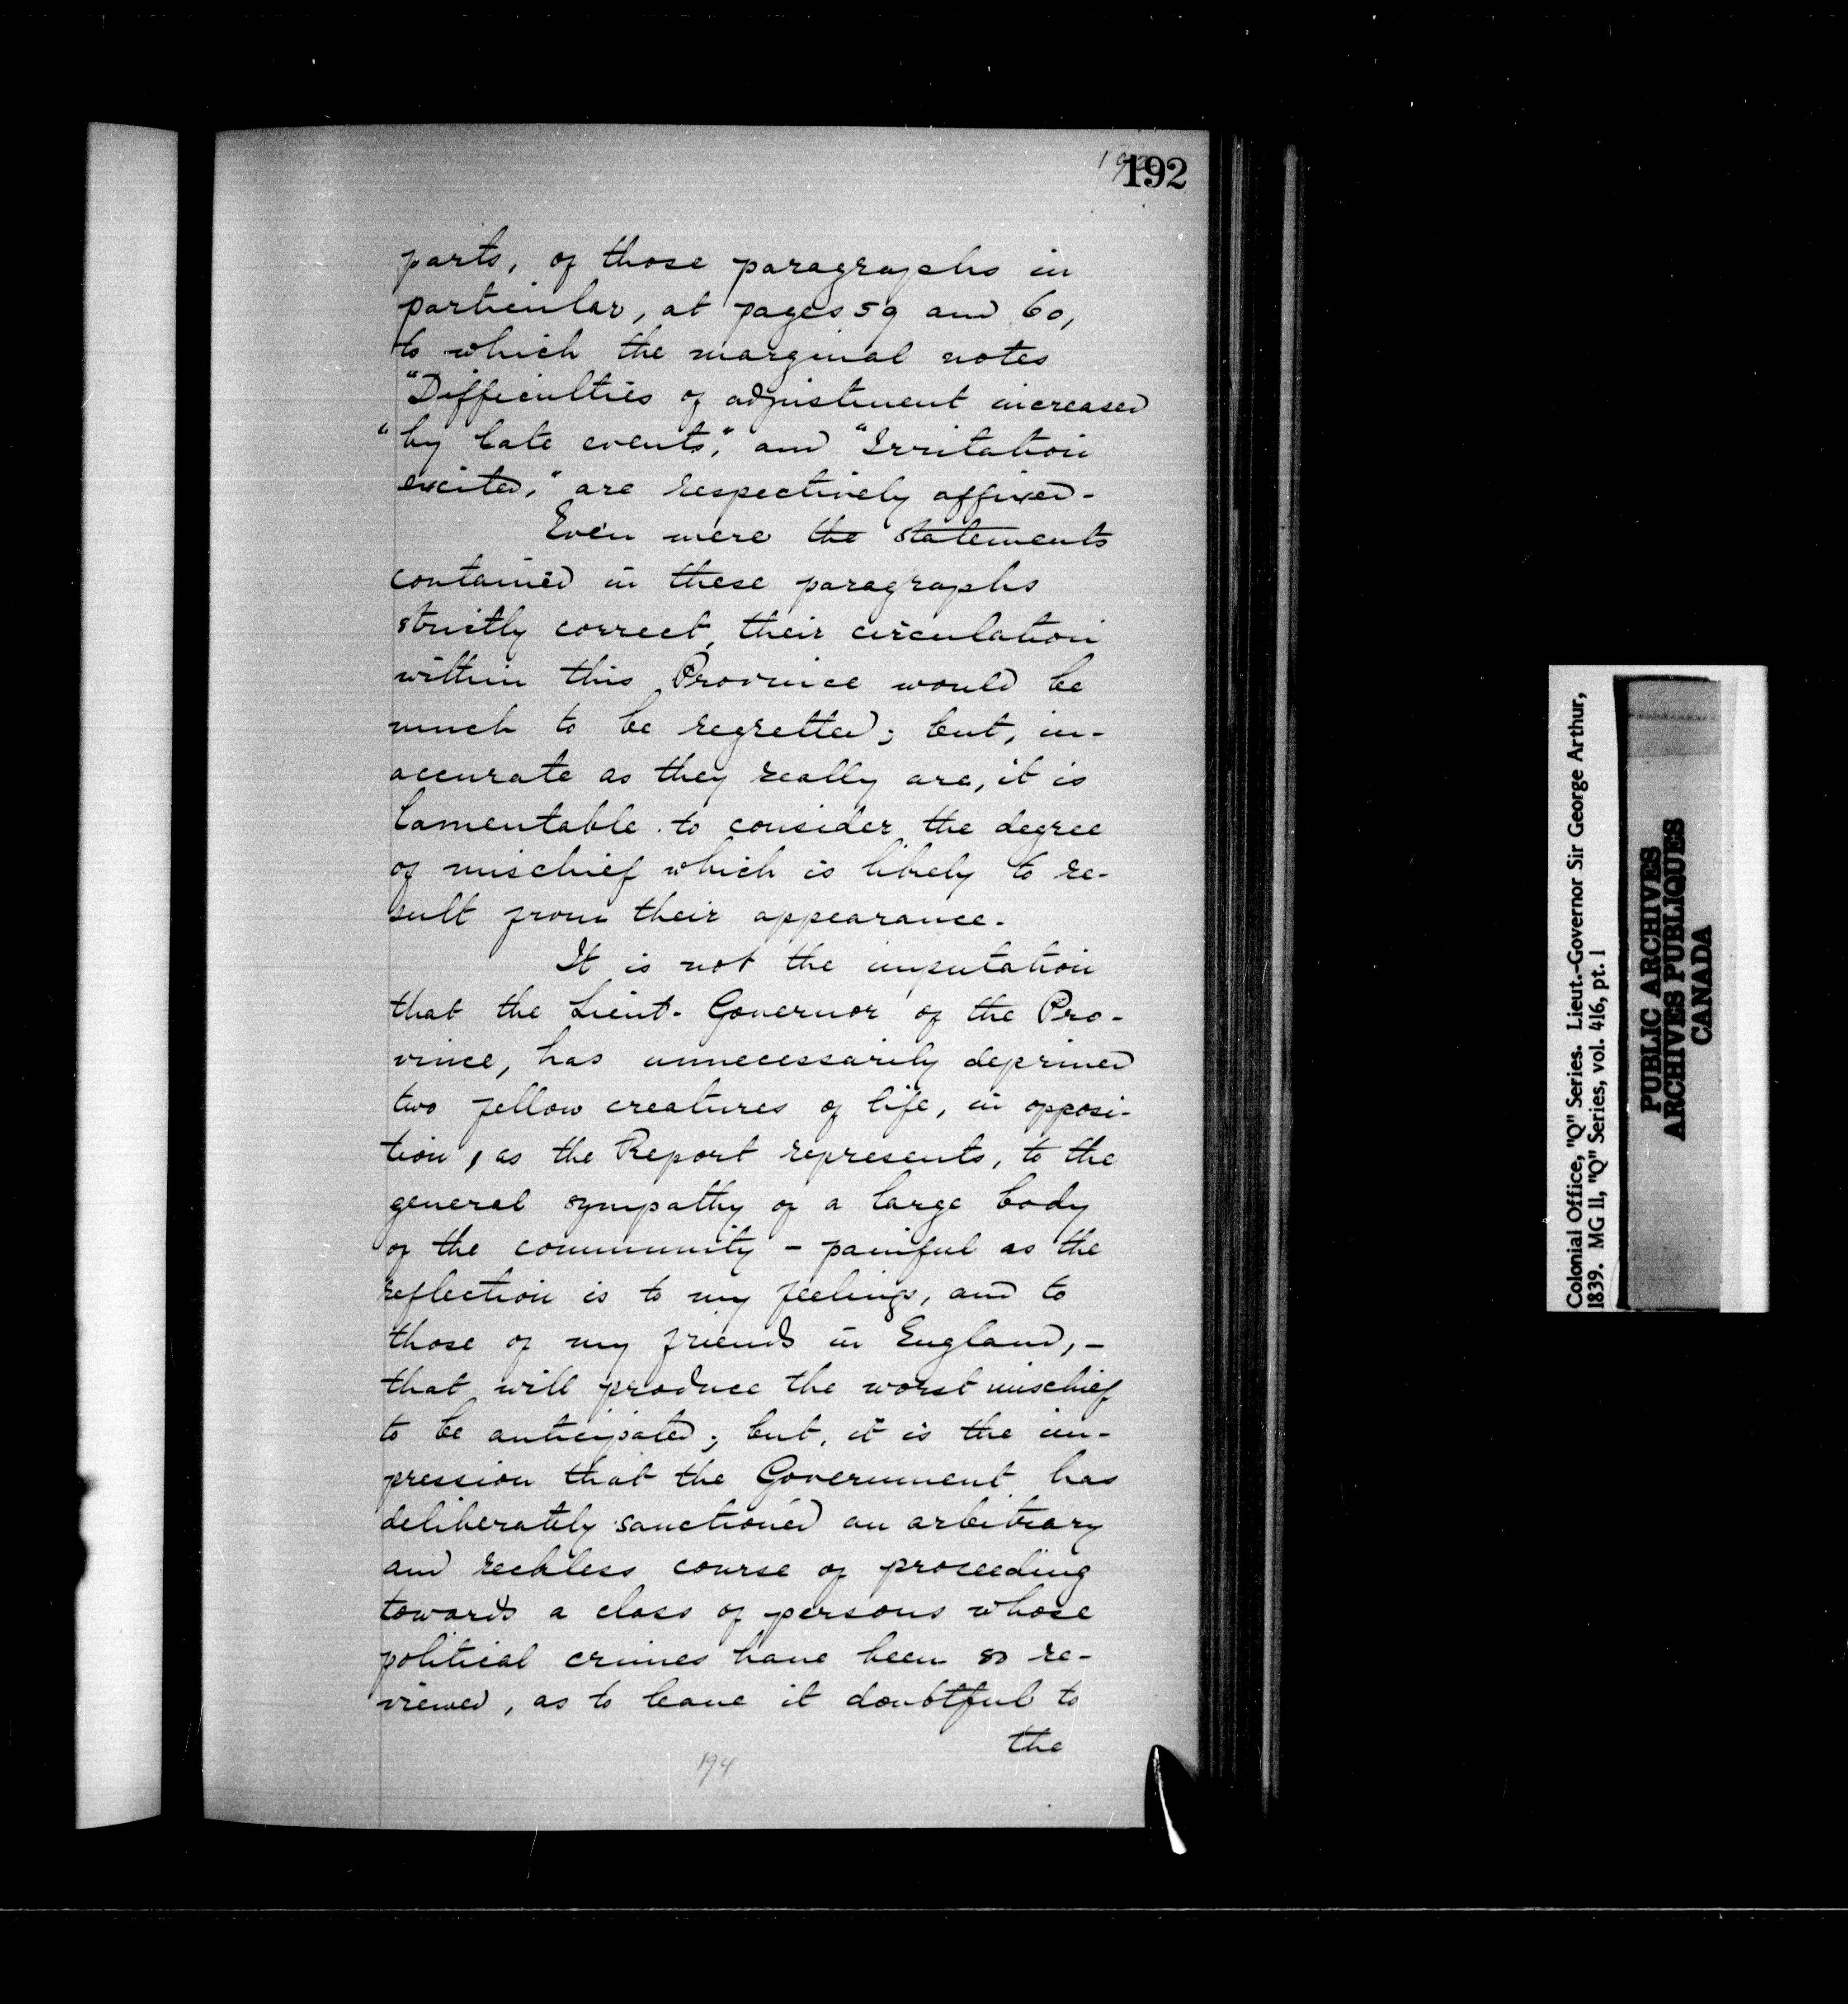 192
parts, of those paragraphs in
particular, at pages 59 and 60,
to which the marginal notes
"Difficulties of adjustment increased
"by late events", and "Irritation
excited," are respectively affixed-
Even were the statements
contained in these paragraphs
strictly correct, their circulation
within this Province would be
much to be regretted; but, in-
accurate as they really are, it is
lamentable to consider the degree
of mischief which is likely to re-
sult from their appearance.
It is not the imputation
that the Lieut. Governor of the Pro-
vince, has unnecessarily deprived
two fellow creatures of life, in opposi-
tion, as the Report represents, to the
general sympathy of a large body
of the community - painful as the
reflection is to my feelings, and to
those of my friends in England, -
that will produce the worst mischief
to be anticipated; but, it is the im-
pression that the Government has
deliberately sanctioned an arbitrary
and reckless course of proceeding
towards a class of persons whose
political crimes have been so re-
viewed, as to leave it doubtful to
the
194
Colonial Office, "Q" Series. Lieut.-Governor Sir George Arthur,
1839. MG 11, "Q" Series, vol. 416, pt. 1
PUBLIC ARCHIVES
ARCHIVES PUBLIQUES
CANADA